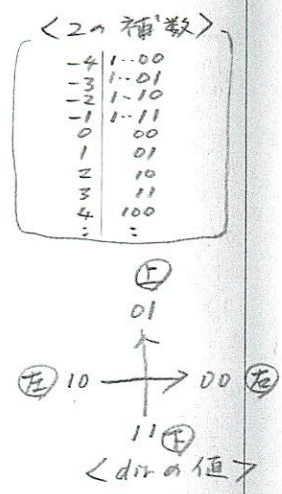 <2の補数>
-4 1--00
-3 1--01
-2 1--10
-1 1--11
0 00
1 01
2 10
3 11
4 100
: :
上
01
左 10 00 右
11 下
<dirの値>